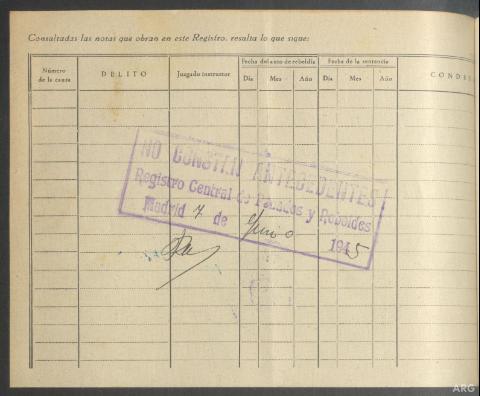 Consultadas las notas que obran en este Registro, resulta lo que sigue:
Número de la causa
DELITO
Juzgado instructor
Fecha del auto de rebeldía
Día Mes Año
Fecha de la sentencia
Día Mes Año
NO CONSTAN ANTECEDENTES
Registro Central de Penados y Rebeldes
Madrid 7 de Junio 1945
ARG